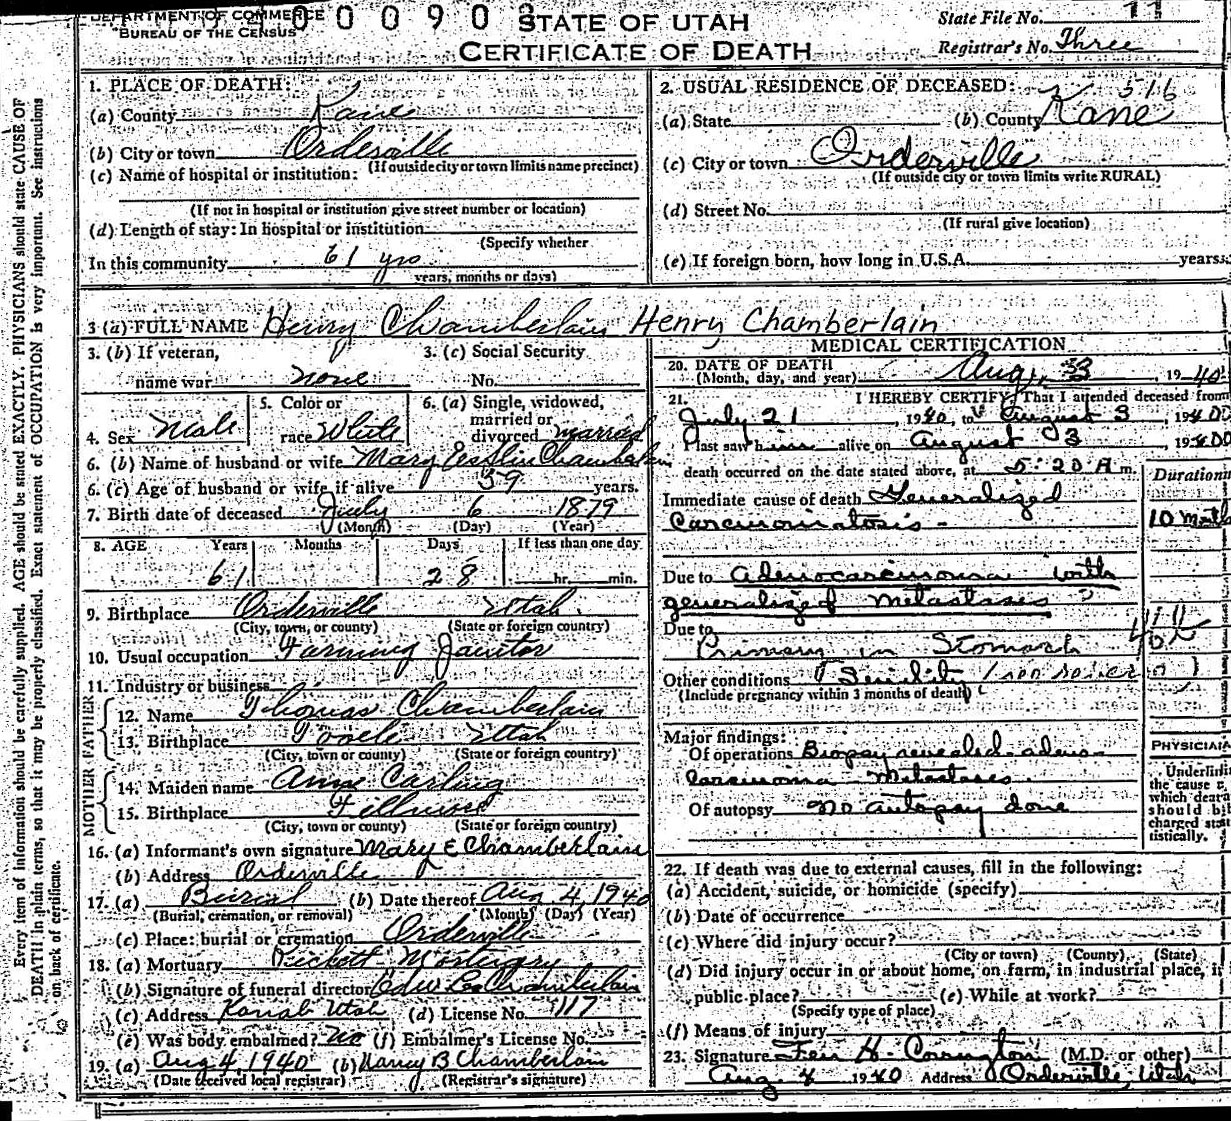 DEPARTMENT OF COMMERCE
BUREAU OF THE CENSUS
STATE OF UTAH
CERTIFICATE OF DEATH
State File No. 11
Registrar's No. Three
1. PLACE OF DEATH:
(a) County Kane
(b) City or town Orderville
(If outside city or town limits name precinct)
(c) Name of hospital or institution:
(If not in hospital or institution give street number or location)
(d) Length of stay: In hospital or institution
(Specify whether
In this community 61 yrs
years, months or days)
2. USUAL RESIDENCE OF DECEASED: 516
(a) State (b) County Kane
(c) City or town Orderville
(If outside city or town limits write RURAL)
(d) Street No.
(If rural give location)
(e) If foreign born, how long in U.S.A. years.
3 (a) FULL NAME Henry Chamberlain Henry Chamberlain
3. (b) If veteran,
name war none
3. (c) Social Security
No.
4. Sex Male
5. Color or
race White
6. (a) Single, widowed,
married or
divorced married
6. (b) Name of husband or wife Mary Chamberlain
6. (c) Age of husband or wife if alive 59 years.
7. Birth date of deceased July 6 1879
(Month) (Day) (Year)
8. AGE Years Months Days If less than one day
61 28 hr. min.
9. Birthplace Orderville Utah
(City, town, or county) (State or foreign country)
10. Usual occupation Farming Janitor
11. Industry or business
FATHER
12. Name Thomas Chamberlain
13. Birthplace Tooele Utah
(City, town or county) (State or foreign country)
MOTHER
14. Maiden name Anne Carling
15. Birthplace Fillmore
(City, town or county) (State or foreign country)
16. (a) Informant's own signature Mary E Chamberlain
(b) Address Orderville
17. (a) Burial (b) Date thereof Aug 4, 1940
(Burial, cremation, or removal) (Month) (Day) (Year)
(c) Place: burial or cremation Orderville
18. (a) Mortuary Mortuary
(b) Signature of funeral director Chamberlain
(c) Address Kanab Utah (d) License No. 117
(e) Was body embalmed? No (f) Embalmer's License No.
19. (a) Aug 4, 1940 (b) Nancy B Chamberlain
(Date received local registrar) (Registrar's signature)
MEDICAL CERTIFICATION
20. DATE OF DEATH
(Month, day, and year) Aug. 3, 1940
21. I HEREBY CERTIFY, That I attended deceased from
July 21, 1940, to August 3, 1940
I last saw him alive on August 3, 1940
death occurred on the date stated above, at 5:20 A m.
Duration
Immediate cause of death Generalized
Carcinomatosis 10 mths
Due to Adenocarcinoma with
generalized metastases
Due to
Primary in Stomach
Other conditions Senility
(Include pregnancy within 3 months of death)
Major findings:
Of operations Biopsy revealed adeno-
carcinoma Metastases
Of autopsy No autopsy done
PHYSICIAN
Underline
the cause
which death
should be
charged sta-
tistically.
22. If death was due to external causes, fill in the following:
(a) Accident, suicide, or homicide (specify)
(b) Date of occurrence
(c) Where did injury occur?
(City or town) (County) (State)
(d) Did injury occur in or about home, on farm, in industrial place, i
public place? (e) While at work?
(Specify type of place)
(f) Means of injury
23. Signature H. (M.D. or other)
Aug 4 1940 Address Orderville, Utah
Every item of information should be carefully supplied. AGE should be stated EXACTLY. PHYSICIANS should state CAUSE OF
DEATH in plain terms, so that it may be properly classified. Exact statement of OCCUPATION is very important. See instructions
on back of certificate.